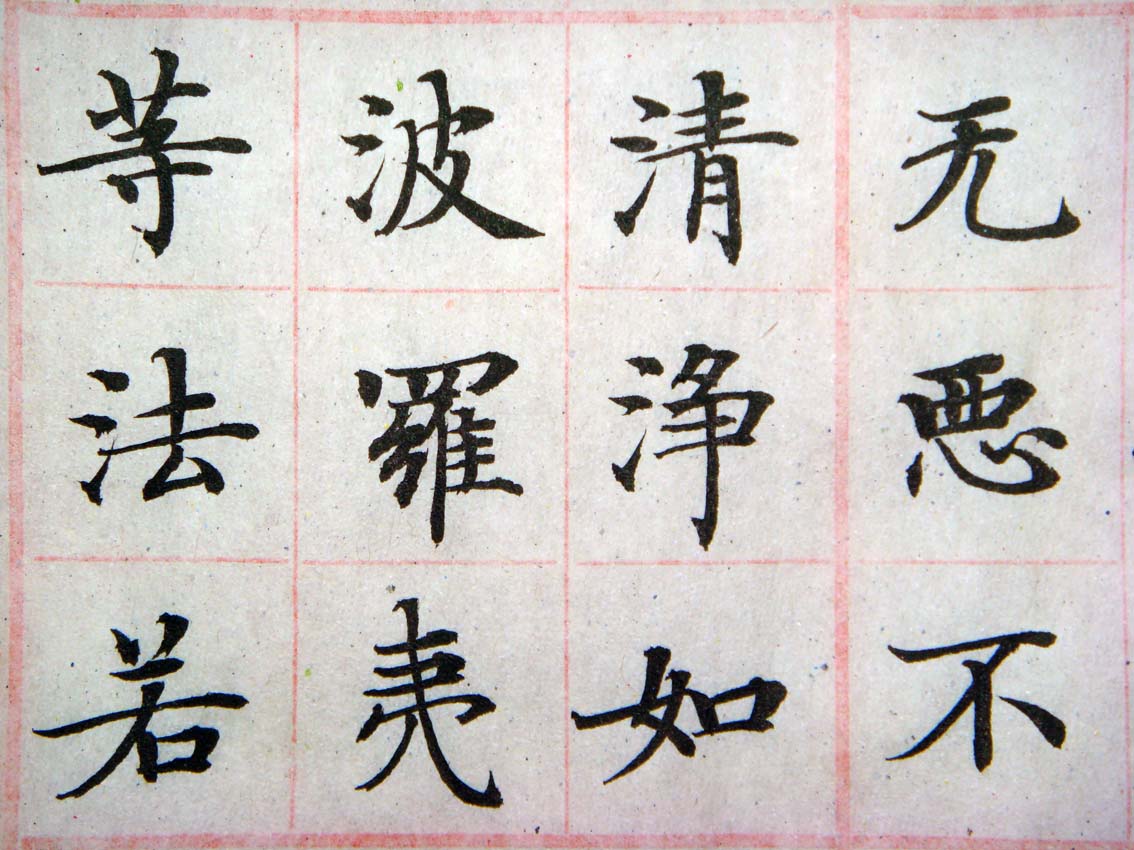 无悪不
清净如
波羅夷
等法若